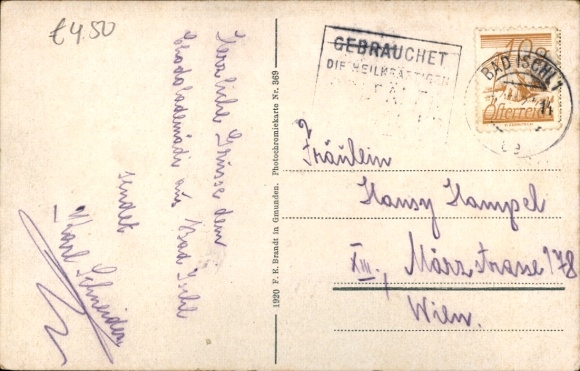 €4.50
Herzliche Grüsse dem
Schokolademädi aus Bad Ischl
sendet
Karl Schneider
1920 F. E. Brandt in Gmunden. Photochromiekarte Nr. 369
GEBRAUCHET
DIE HEILKRÄFTIGEN
BAD ISCHL 1
10g
Österreich
Fräulein
Hansy Hampel
XIII., Märzstrasse 178
Wien.